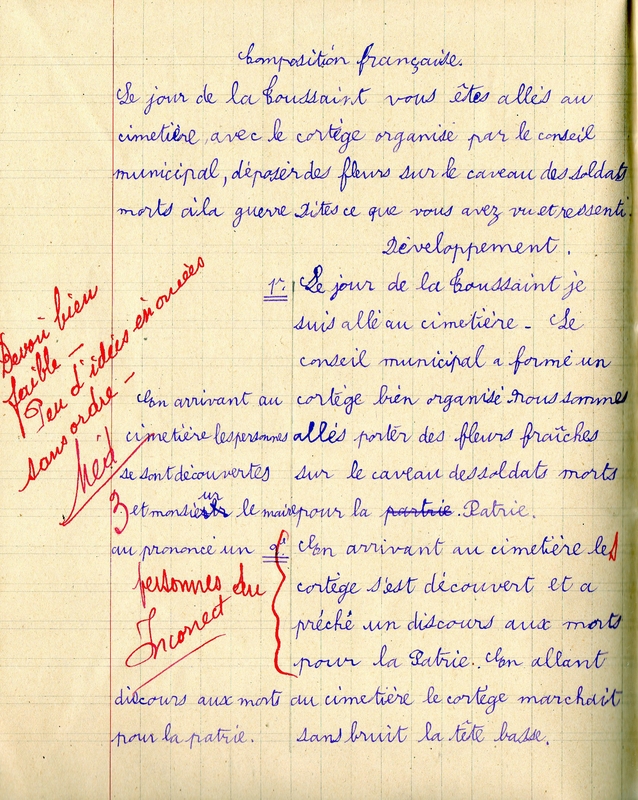 Composition française.
Le jour de la Toussaint vous êtes allés au
cimetière, avec le cortège organisé par le conseil
municipal, déposer des fleurs sur le caveau des soldats
morts à la guerre Dites ce que vous avez vu et ressenti.
Développement.
1º. Le jour de la Toussaint je
suis allé au cimetière - Le
conseil municipal a formé un
cortège bien organisé. nous sommes
allés porter des fleurs fraîches
sur le caveau des soldats morts
pour la partrie. Patrie.
En arrivant au cimetière les
cortège s'est découvert et a
prêché un discours aux morts
pour la Patrie. En allant
au cimetière le cortège marchait
sans bruit la tête basse.
Devoir bien
faible -
Peu d'idées énoncées
sans ordre -
Méd
3
En arrivant au
cimetière les personnes
se sont découvertes
et monsieur le maire
au prononcé un
discours aux morts
pour la patrie.
personnes du
Incorrect